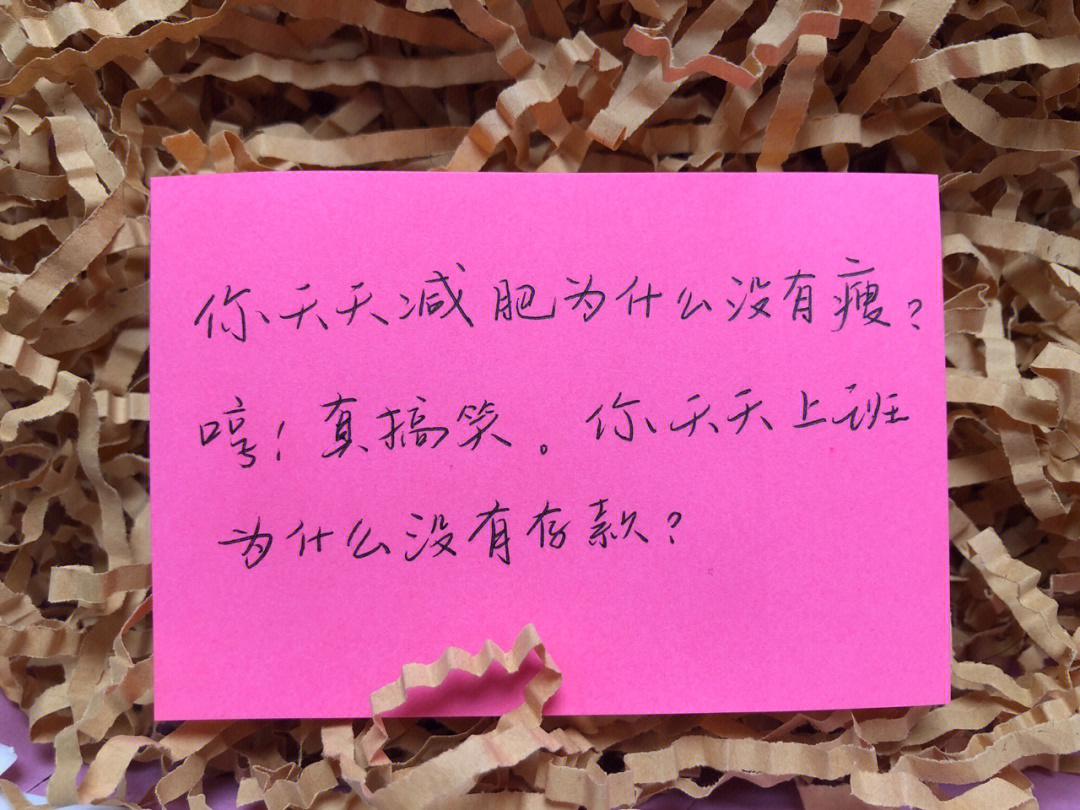 你天天减肥为什么没有瘦?
哼!真搞笑。你天天上班
为什么没有存款?